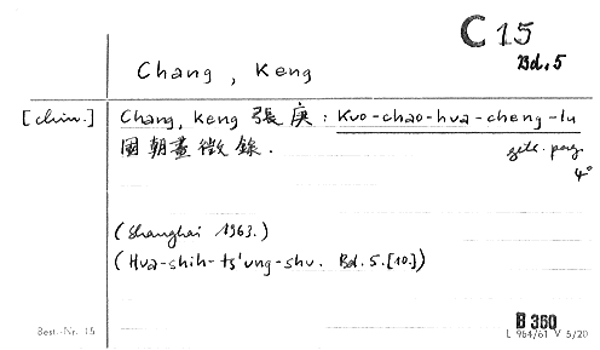 C 15
Bd. 5
Chang, Keng
[chin.] Chang, Keng 張庚: Kuo-chao-hua-cheng-lu
國朝畫徵錄.
getr. pag.
4°
(Shanghai 1963.)
(Hua-shih-ts'ung-shu. Bd. 5.[10.])
B 360
Best.-Nr. 15
L 964/61 V 5/20